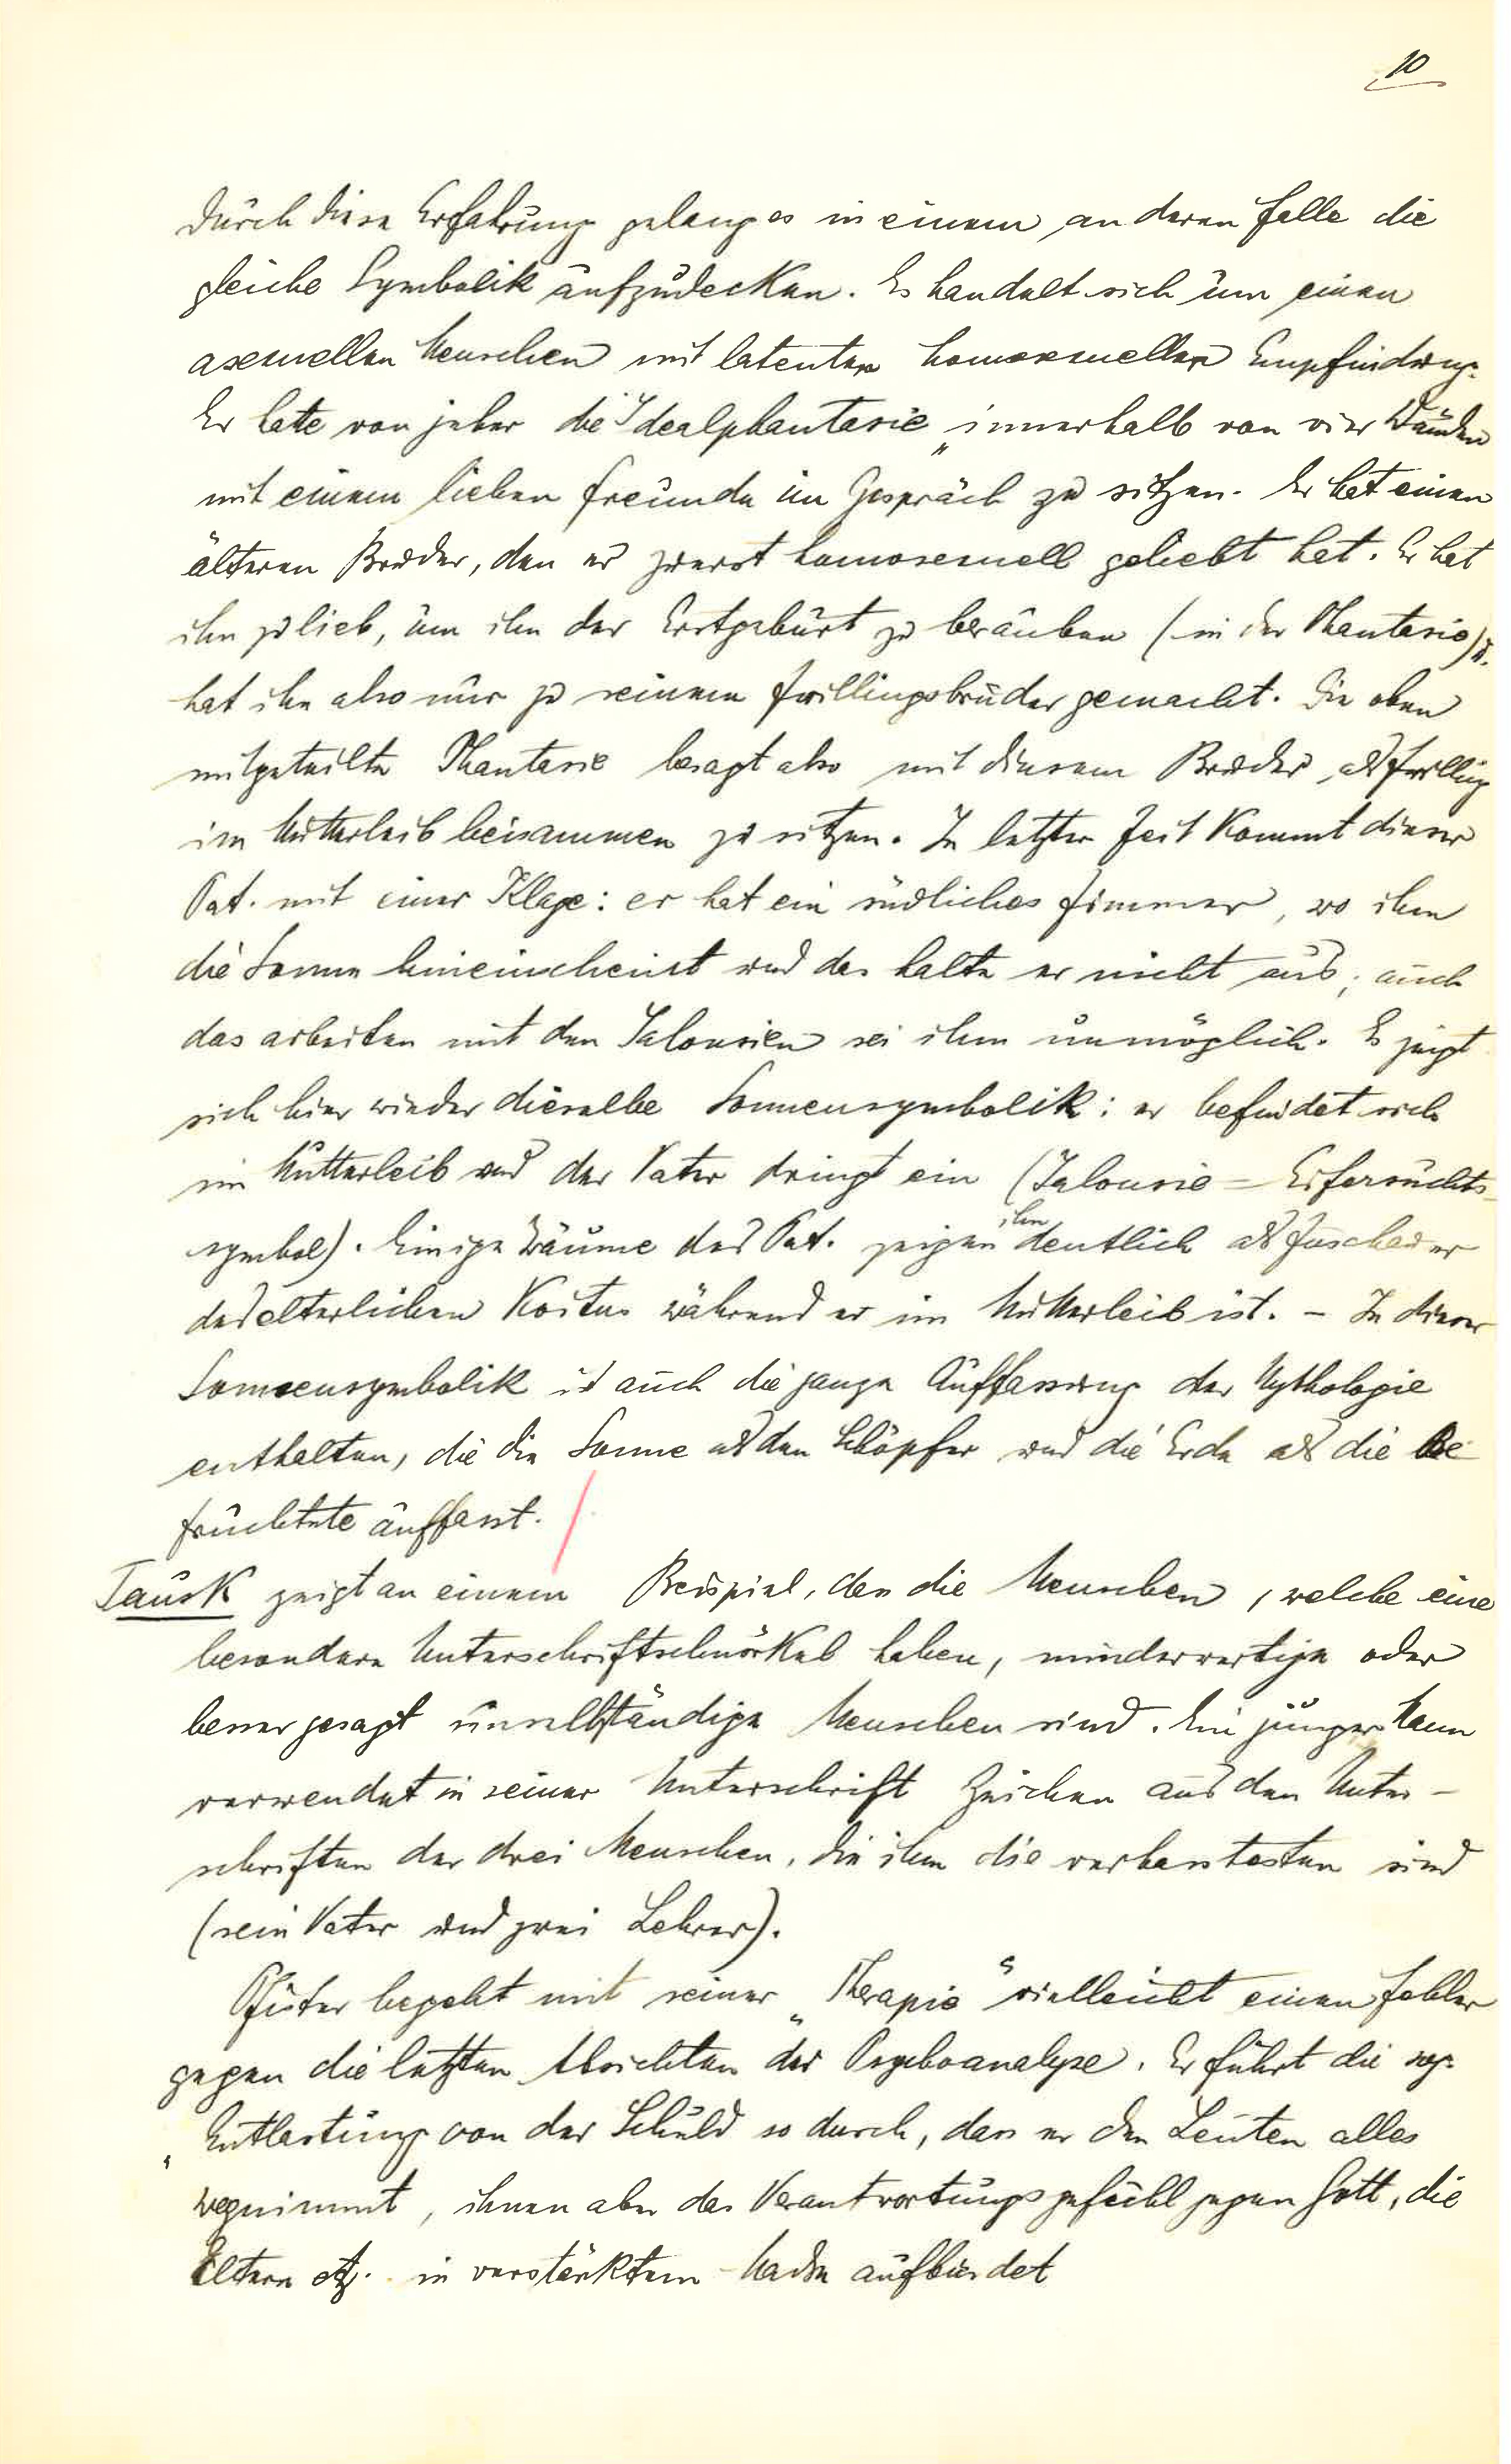 10
durch diese Erfahrung gelang es in einem anderen Falle die
gleiche Symbolik aufzudecken. Es handelt sich um einen
asexuellen Menschen mit latenter homosexueller Empfindung.
Er hatte von jeher die Idealphantasie „innerhalb von vier Wänden
mit einem lieben Freunde im Gespräch zu sitzen. Er hat einen
älteren Bruder, den er zuerst homosexuell geliebt hat. Er hat
ihn zu lieb, um ihn der Erstgeburt zu berauben (in der Phantasie) u.
hat ihn also nur zu seinem Zwillingsbruder gemacht. Die oben
mitgeteilte Phantasie besagt also mit diesem Bruder als Zwilling
im Mutterleib beisammen zu sitzen. In letzter Zeit kommt dieser
Pat. mit einer Klage: er hat ein südliches Zimmer, wo ihm
die Sonne hineinscheint und das halte er nicht aus; auch
das arbeiten mit den Jalousien sei ihm unmöglich. Es zeigt
sich hier wieder dieselbe Sonnensymbolik: er befindet sich
im Mutterleib und der Vater dringt ein (Jalousie = Eifersuchts-
symbol). Einige Träume des Pat. zeigen ihn deutlich als Zuschauer
des elterlichen Koitus während er im Mutterleib ist. – In dieser
Sonnensymbolik ist auch die ganze Auffassung der Mythologie
enthalten, die die Sonne als den Schöpfer und die Erde als die Be-
fruchtete auffasst.
Tausk zeigt an einem Beispiel, dass die Menschen, welche eine
besondere Unterschriftschnörkel haben, minderwertige oder
besser gesagt unselbständige Menschen sind. Ein junger Mann
verwendet in seiner Unterschrift Zeichen aus den Unter-
schriften der drei Menschen, die ihm die verhasstesten sind
(sein Vater und zwei Lehrer).
Pfister begeht mit seiner „Therapie“ vielleicht einen Fehler
gegen die letzten Absichten der Psychoanalyse. Er führt die sog.
„Entlastung von der Schuld so durch, dass er den Leuten alles
wegnimmt, ihnen aber das Verantwortungsgefühl gegen Gott, die
Eltern etz. in verstärktem Maße aufbürdet